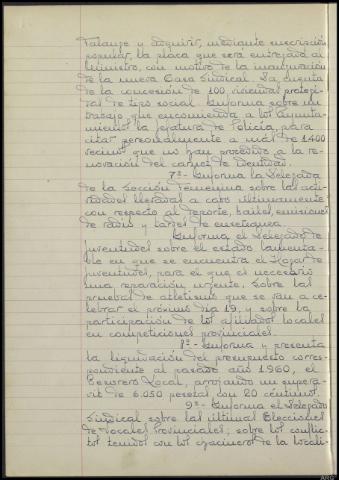 Falange y adquirir, mediante suscripción
popular, la placa que será entregada al
Ministro, con motivo de la inauguración
de la nueva Casa Sindical. Da cuenta
de la concesión de 100 viviendas protegi-
das de tipo social. Informa sobre un
trabajo que encomienda a los Ayunta-
mientos la Jefatura de Policía, para
citar personalmente a más de 1.400
vecinos que no han procedido a la re-
novación del carnet de identidad.
7º- Informa la Delegada
de la Sección Femenina sobre las acti-
vidades llevadas a cabo últimamente
con respecto al deporte, bailes, emisiones
de radio y tardes de enseñanza.
Informa el Delegado de
Juventudes sobre el estado lamenta-
ble en que se encuentra el Hogar de
Juventudes, para el que es necesario
una reparación urgente. Sobre las
pruebas de atletismo que se van a ce-
lebrar el próximo día 19, y sobre la
participación de los afiliados locales
en competiciones provinciales.
8º- Informa y presenta
la liquidación del presupuesto corres-
pondiente al pasado año 1960, el
Tesorero Local, arrojando un superá-
vit de 6.050 pesetas con 20 céntimos.
9º- Informa el Delegado
Sindical sobre las últimas Elecciones
de Vocales Provinciales; sobre los conflic-
tos tenidos con los of de la locali-